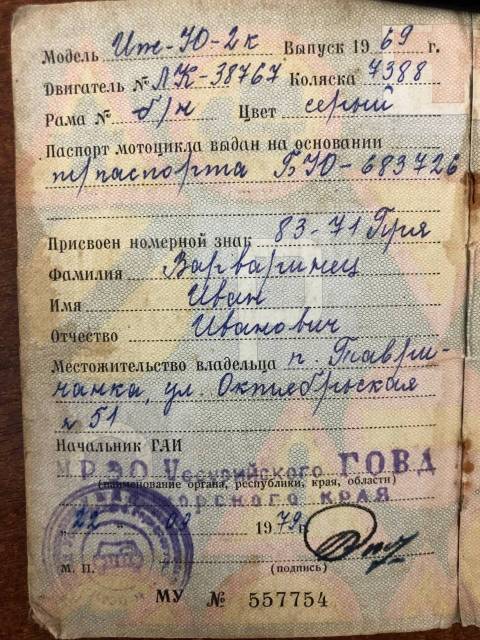 Модель Иж-Ю-2к Выпуск 1969 г.
Двигатель № ЛК-38767 Коляска 7388
Рама № б/н Цвет серый
Паспорт мотоцикла выдан на основании
т/паспорта БЮ-683726
Присвоен номерной знак 83-71 Пря
Фамилия Варваринец
Имя Иван
Отчество Иванович
Местожительство владельца п. Таври-
чанка, ул. Октябрьская
51
Начальник ГАИ
МРЭО Уссурийского ГОВД
(наименование органа, республики, края, области)
Приморского края
„22 " 1979г.
М. П. (подпись)
МУ № 557754